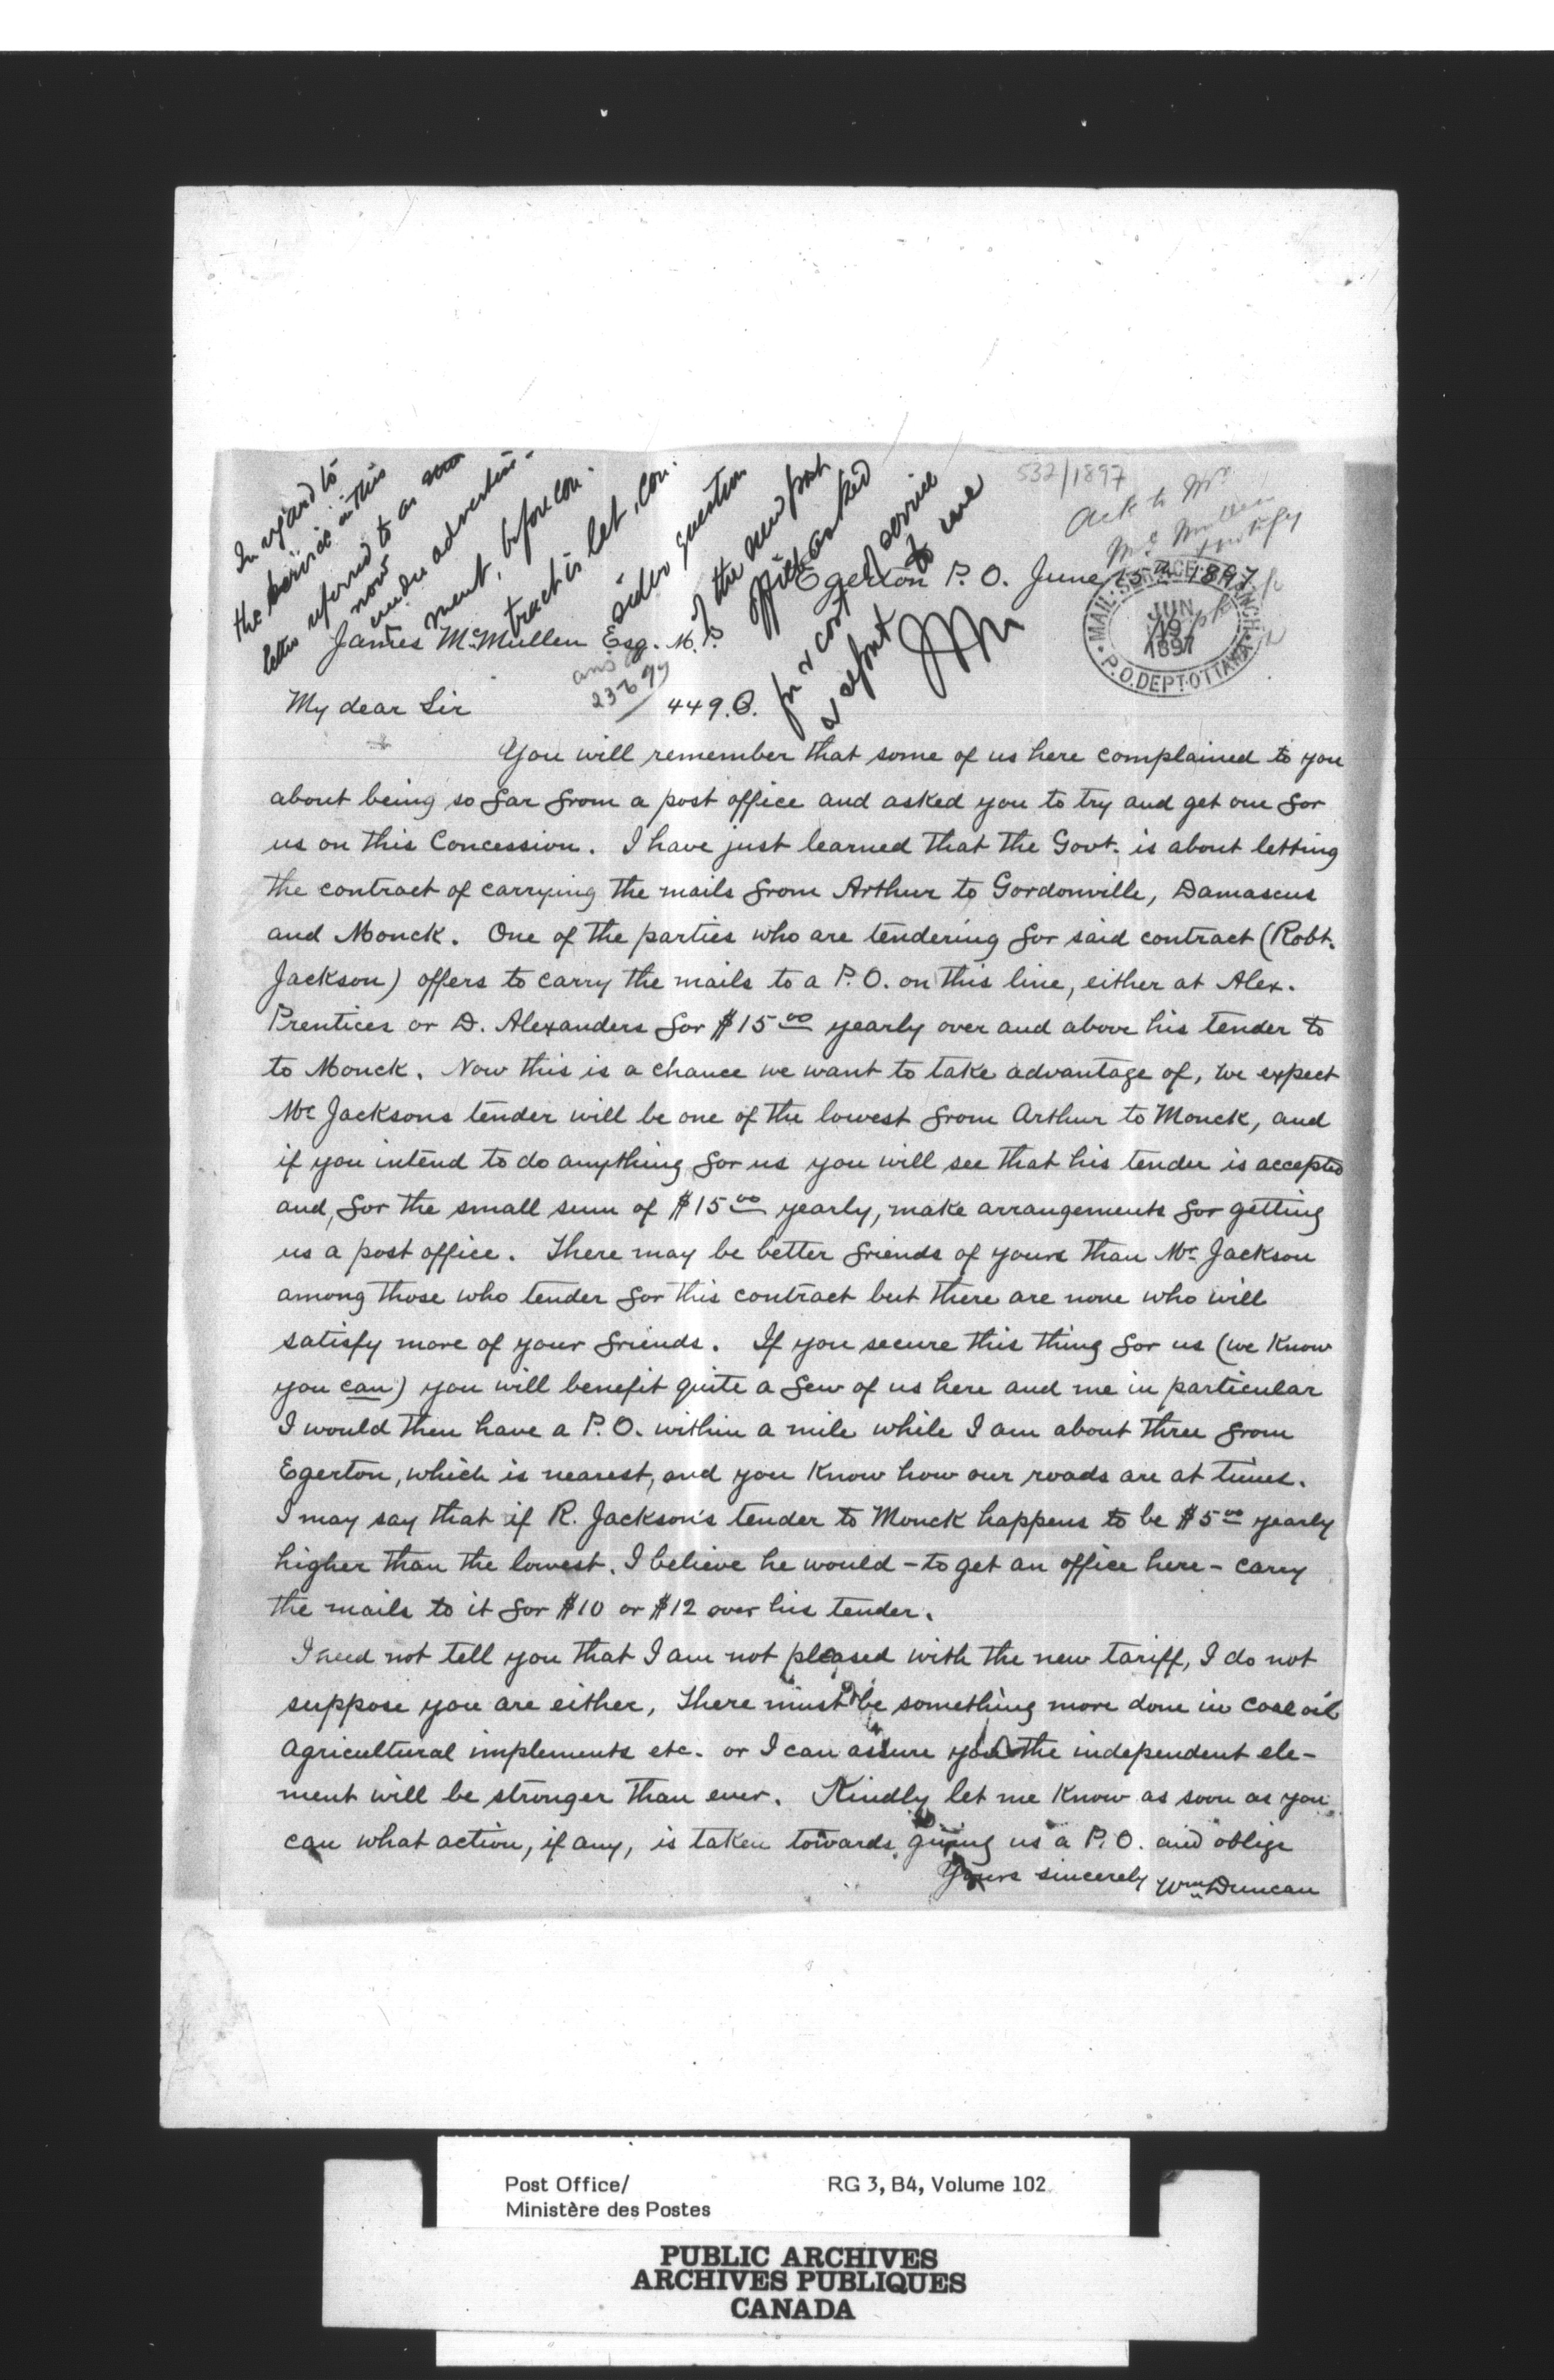 532/1897
In regard to
the service in this
letter referred to as soon
now
under advertise-
ment, before con-
tract is let, con-
sider question
of the new post
office asked
for & cost of service
& report to me
Ack to Mr
McMullen
Egerton P. O. June 15th 1897
MAIL SERVICE BRANCH
JUN
19
1897
P.O. DEPT. OTTAWA
James McMullen Esq. M.P.
ans
23 6 97
My dear Sir
449. O.
You will remember that some of us here complained to you
about being so far from a post office and asked you to try and get one for
us on this Concession. I have just learned that the Govt. is about letting
the contract of carrying the mails from Arthur to Gordonville, Damascus
and Monck. One of the parties who are tendering for said contract (Robt.
Jackson) offers to carry the mails to a P. O. on this line, either at Alex.
Prentices or D. Alexanders for $15 00 yearly over and above his tender to
to Monck. Now this is a chance we want to take advantage of, we expect
Mr Jacksons tender will be one of the lowest from Arthur to Monck, and
if you intend to do anything for us you will see that his tender is accepted
and, for the small sum of $15 00 yearly, make arrangements for getting
us a post office. There may be better friends of yours than Mr. Jackson
among those who tender for this contract but there are none who will
satisfy more of your friends. If you secure this thing for us (we know
you can) you will benefit quite a few of us here and me in particular
I would then have a P. O. within a mile while I am about three from
Egerton, which is nearest, and you know how our roads are at times.
I may say that if R. Jackson's tender to Monck happens to be $5 00 yearly
higher than the lowest, I believe he would - to get an office here - carry
the mails to it for $10 or $12 over his tender.
I need not tell you that I am not pleased with the new tariff, I do not
suppose you are either, There must be something more done in coal oil
agricultural implements etc. or I can assure you the independent ele-
ment will be stronger than ever. Kindly let me know as soon as you
can what action, if any, is taken towards giving us a P. O. and oblige
Yours sincerely Wm Duncan
Post Office/ RG 3, B4, Volume 102
Ministère des Postes
PUBLIC ARCHIVES
ARCHIVES PUBLIQUES
CANADA